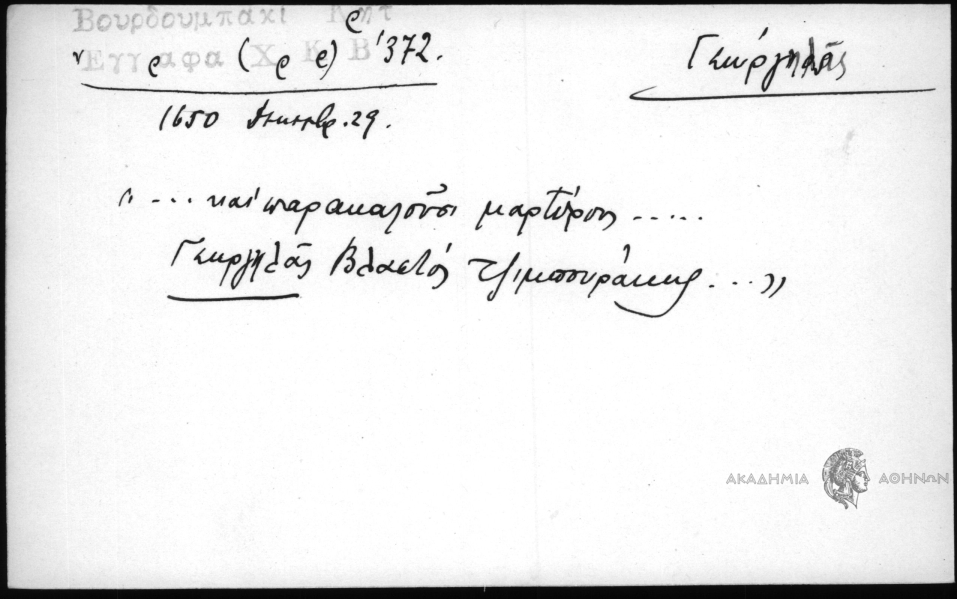 Βουρδουμπάκι Κρητ
Έγγραφα (Χ Κ Β) '372.
Γεωργηλᾶς
1650 Δεκεμβρ. 29.
"... καὶ παρακαλοῦσι μαρτύρους .....
Γεωργηλᾶς Βλαστός Τζιμπουράκης ...."
ΑΚΑΔΗΜΙΑ ΑΘΗΝΩΝ